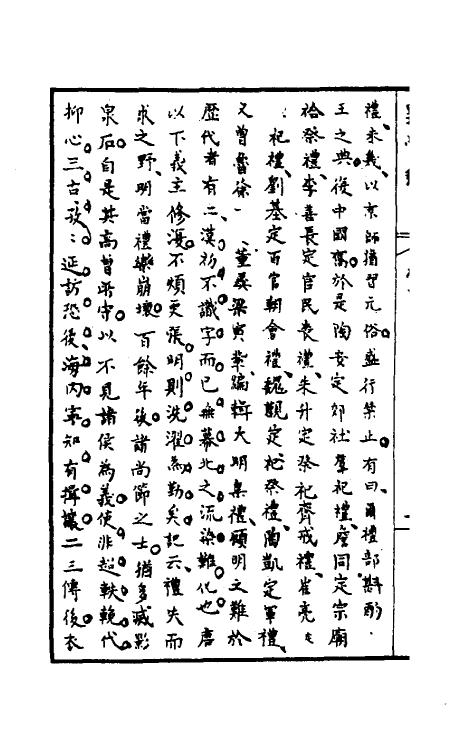 禮、未幾、以京師猶習元俗、盛行禁止、有曰、爾禮部斟酌
王之典、復中國舊、於是陶安定郊社羣祀禮、詹同定宗廟
祫祭禮、李善長定官民喪禮、朱升定祭祀齊戒禮、崔亮
祀禮、劉基定百官朝會禮、魏觀定祀祭禮、陶凱定軍禮、
又曾魯徐一、董彝梁寅纂編輯大明集禮、顧明之難於
歷代者有二、漢初不識字而已、無幕北之流染難化也、唐
以下義主修復不煩更張、明則洗濯為勤矣、記云、禮失而
求之野、明當禮樂崩壞、百餘年後、諸尚節之士、猶多滅影
泉石、自是其高曾所守、以不見諸侯為義、使非超軼晚代
抑心三古、孜〻延訪恐後、海內寧知有揖讓、二三傳後、衣